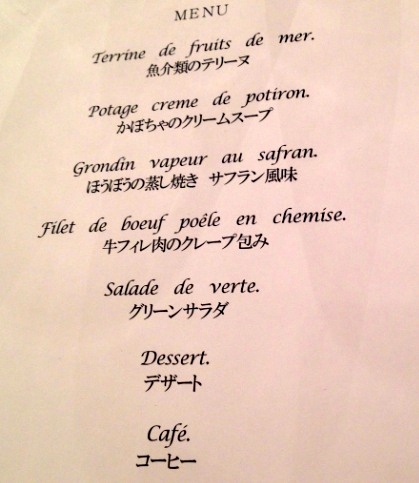 MENU
Terrine de fruits de mer.
魚介類のテリーヌ
Potage creme de potiron.
かぼちゃのクリームスープ
Grondin vapeur au safran.
ほうぼうの蒸し焼き サフラン風味
Filet de boeuf poêle en chemise.
牛フィレ肉のクレープ包み
Salade de verte.
グリーンサラダ
Dessert.
デザート
Café.
コーヒー